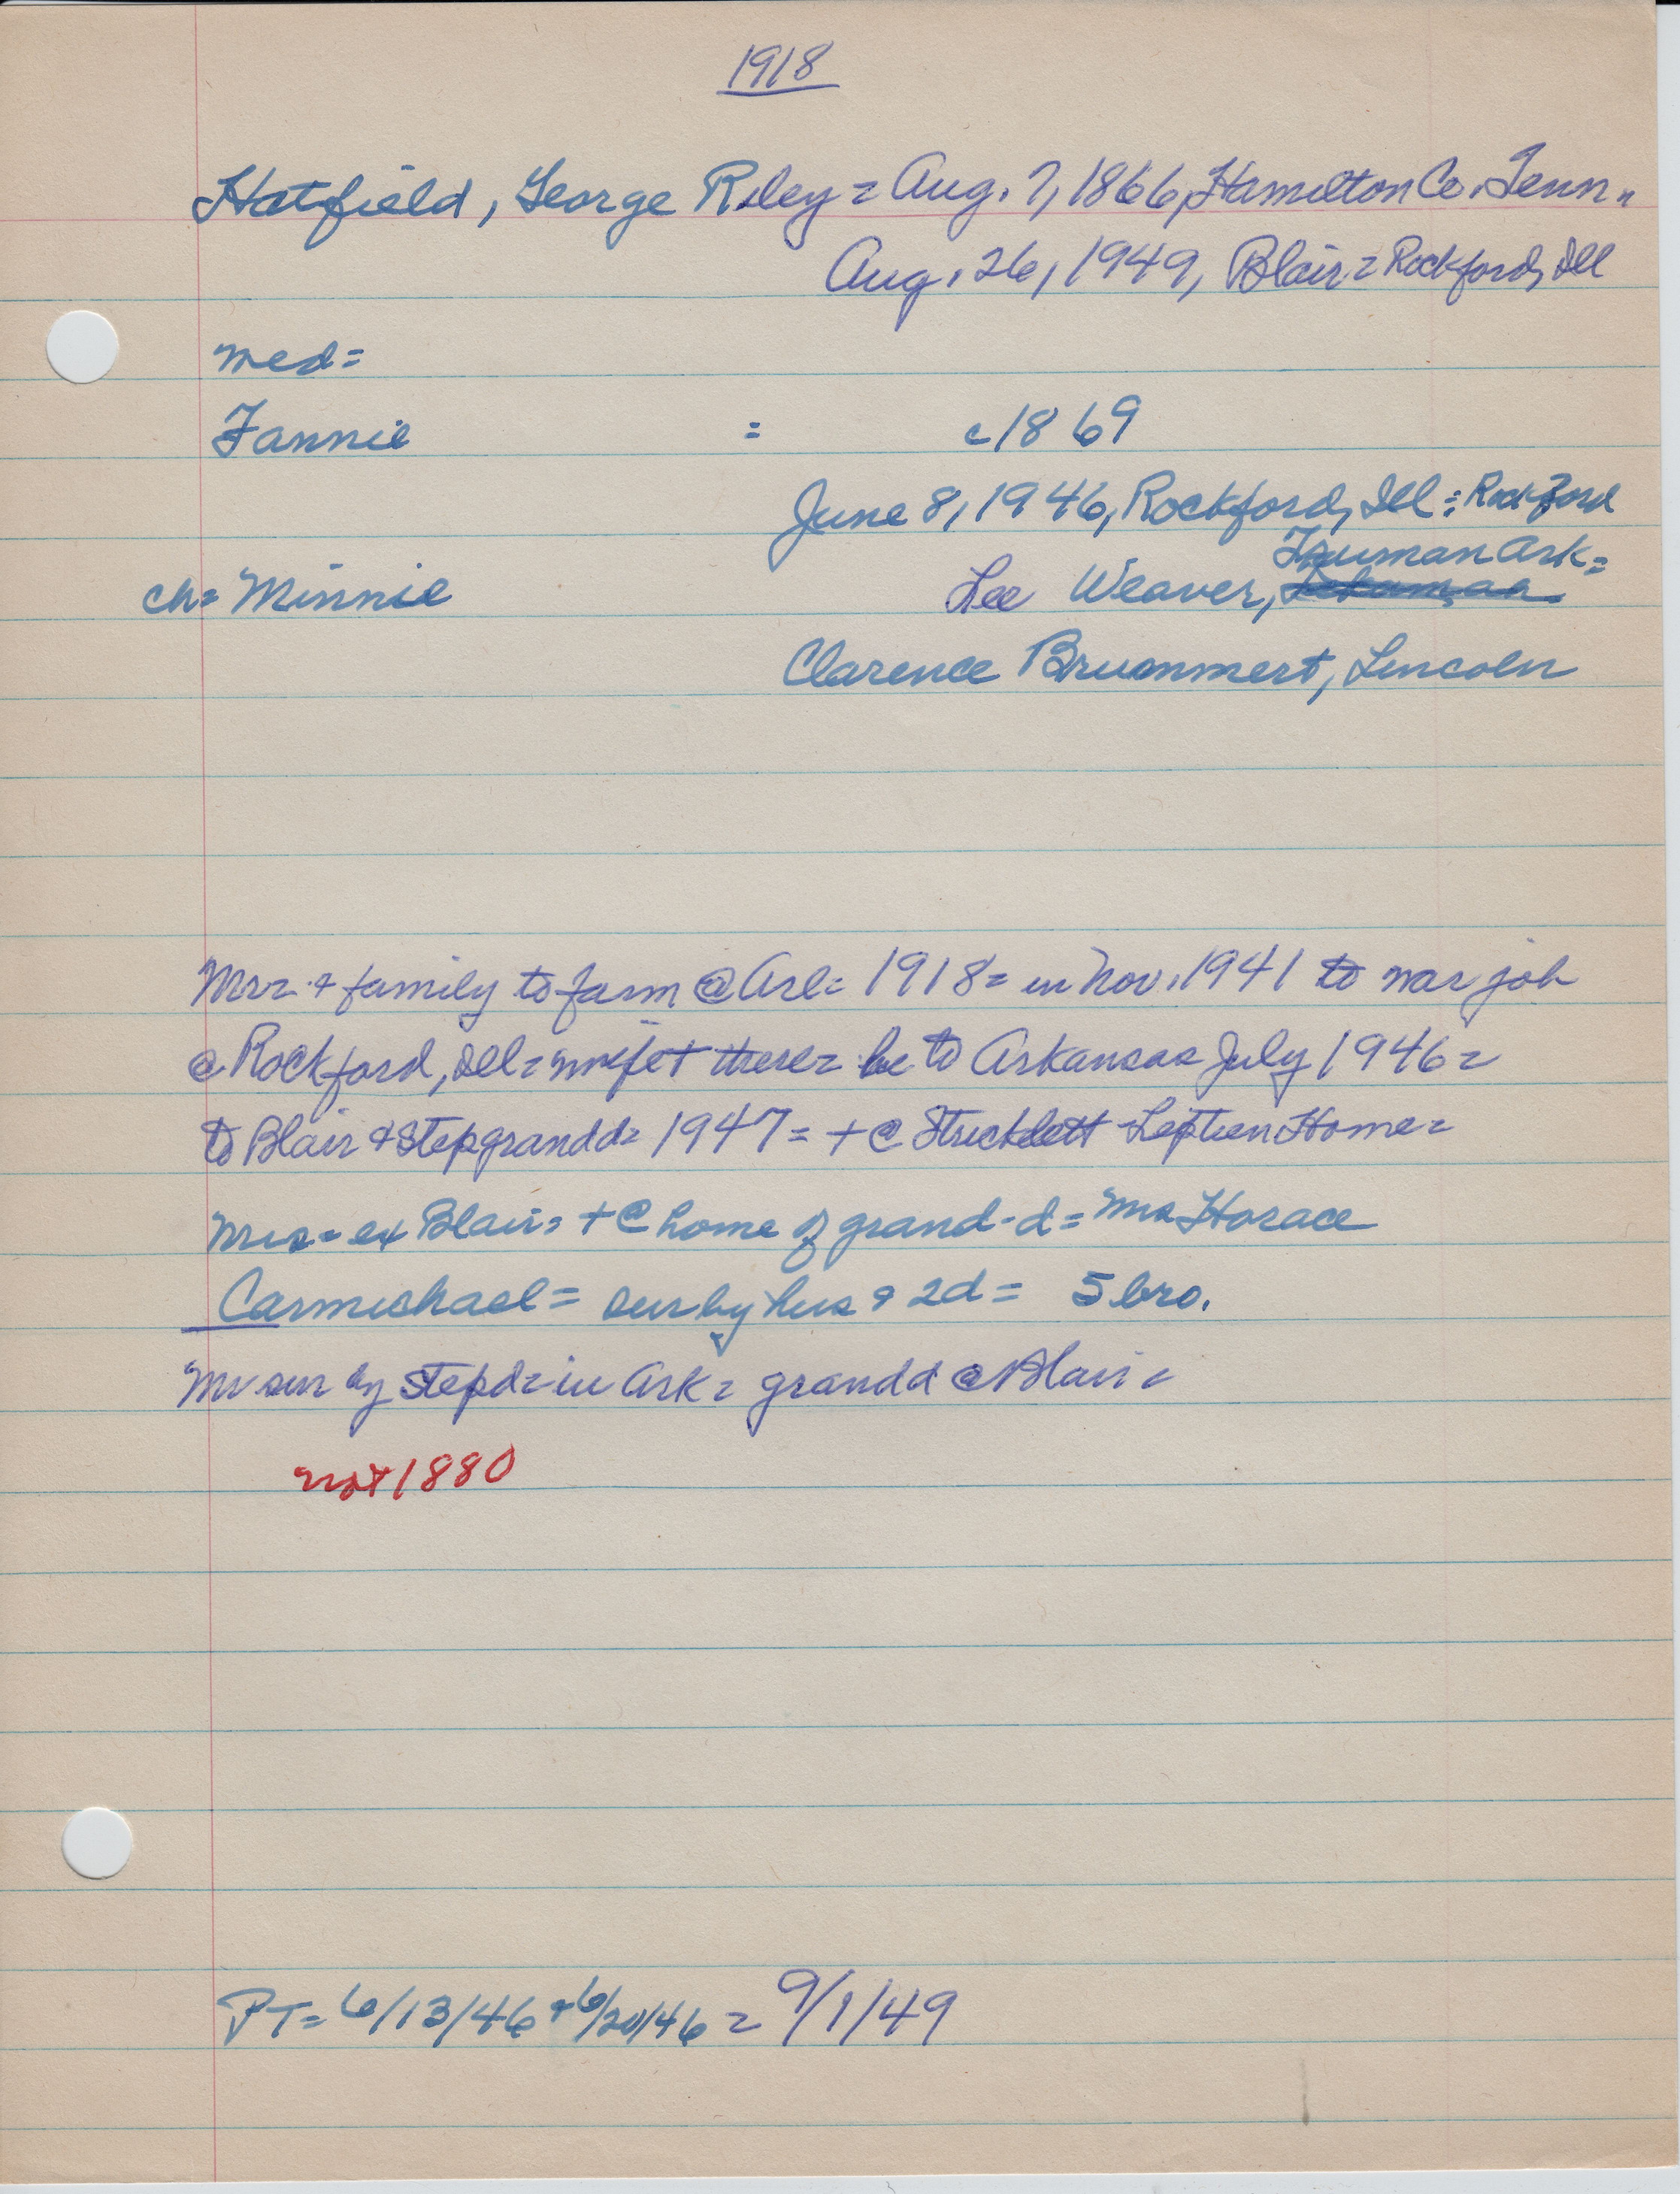 1918
Hatfield, George Riley = Aug. 7, 1866, Hamilton Co. Tenn =
Aug. 26, 1949, Blair = Rockford, Ill
med =
Fannie = c1869
June 8, 1946, Rockford, Ill = Rockford
Truman Ark =
ch = Minnie Lee Weaver,
Clarence Brummert, Lincoln
Mr. & family to farm @ Arl = 1918 = in Nov. 1941 to war job
@ Rockford, Ill = wife + there = he to Arkansas July 1946 =
to Blair & stepgrandd = 1947 = + @ Stricklett Home =
Mrs = ex Blair = + @ home of grand-d = Mrs Horace
Carmichael = sur by hus & 2d = 5 bro.
Mr sur by stepd = in Ark = grandd @ Blair =
not 1880
PT = 6/13/46 & 6/20/46 = 9/1/49